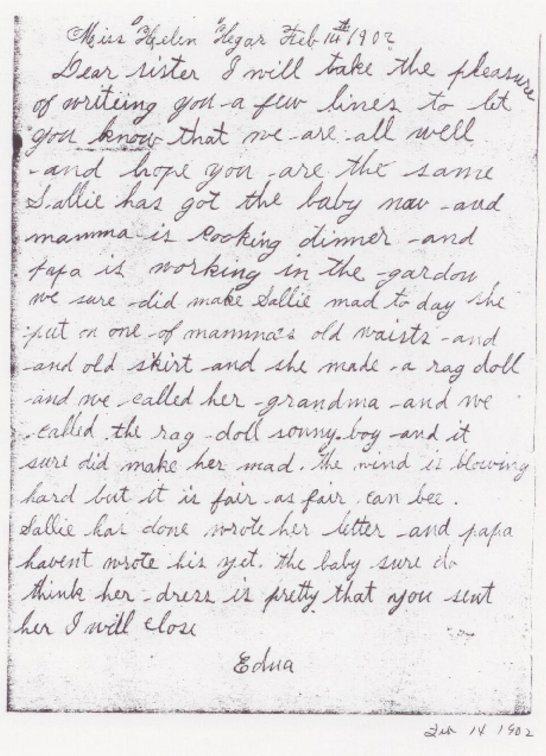 Miss Helen Hegar Feb 14th 1902
Dear sister I will take the pleasure
of writeing you a few lines to let
you know that we are all well
and hope you are the same
Sallie has got the baby now and
mamma is cooking dinner and
papa is working in the gardon
we sure did make Sallie mad to day she
put on one of mamma's old waists and
and old skirt and she made a rag doll
and we called her grandma and we
called the rag doll sonny boy and it
sure did make her mad. the wind is blowing
hard but it is fair as fair can bee.
Sallie has done wrote her letter and papa
havent wrote his yet. the baby sure do
think her dress is pretty that you sent
her I will close
Edna
Feb 14 1902